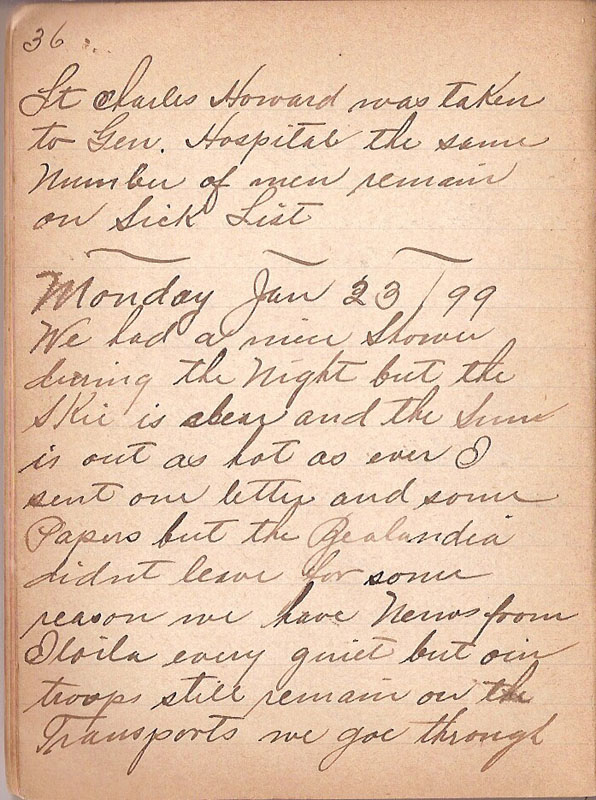 36
Lt Charles Howard was taken
to Gen. Hospital the same
Number of men remain
on Sick List
Monday Jan 23/99
We had a nice Shower
during the Night but the
Skie is clear and the Sun
is out as hot as ever I
sent one letter and some
Papers but the Zealandia
didnt leave for some
reason we have News from
Iloila every quiet but our
troops still remain on the
Transports we goe through